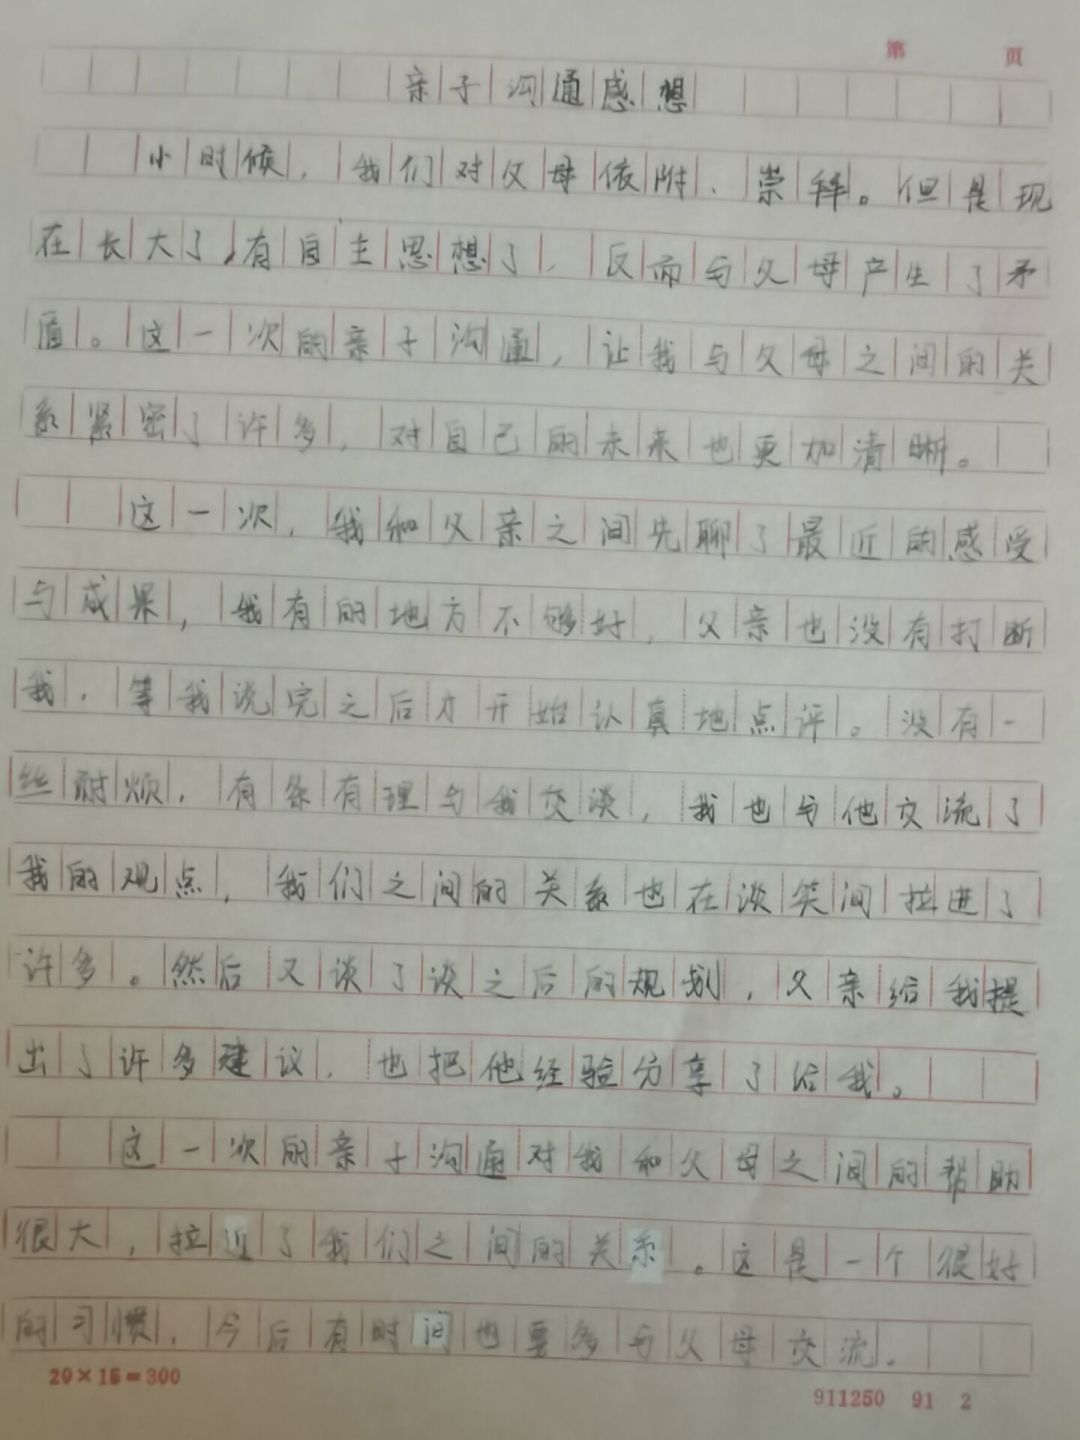 第 页
亲子沟通感想
小时候，我们对父母依附、崇拜。但是现
在长大了，有自主思想了，反而与父母产生了矛
盾。这一次的亲子沟通，让我与父母之间的关
系紧密了许多，对自己的未来也更加清晰。
这一次，我和父亲之间先聊了最近的感受
与成果，我有的地方不够好，父亲也没有打断
我，等我说完之后才开始认真地点评。没有一
丝耐烦，有条有理与我交谈，我也与他交流了
我的观点，我们之间的关系也在谈笑间拉进了
许多。然后又谈了谈之后的规划，父亲给我提
出了许多建议，也把他经验分享了给我。
这一次的亲子沟通对我和父母之间的帮助
很大，拉近了我们之间的关系。这是一个很好
的习惯，今后有时间也要多与父母交流。
20×15=300
911250 91 2